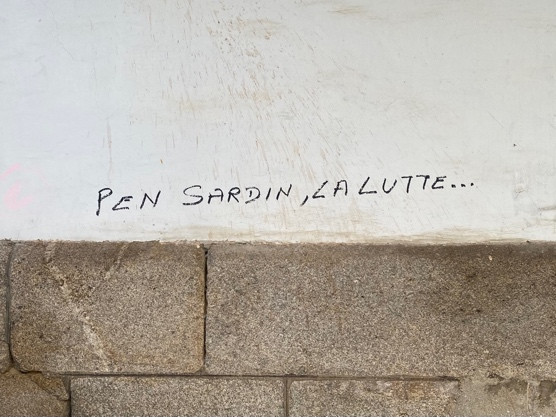 PEN SARDIN, LA LUTTE...